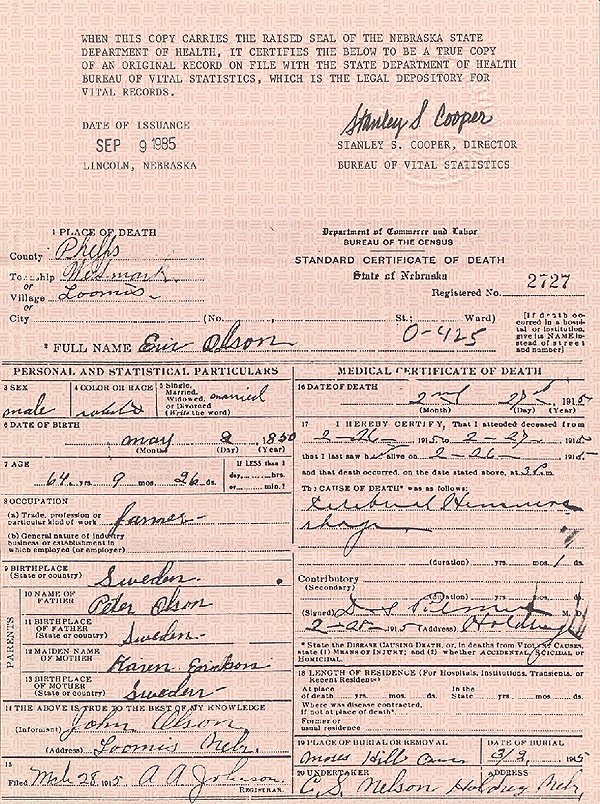 WHEN THIS COPY CARRIES THE RAISED SEAL OF THE NEBRASKA STATE
DEPARTMENT OF HEALTH, IT CERTIFIES THE BELOW TO BE A TRUE COPY
OF AN ORIGINAL RECORD ON FILE WITH THE STATE DEPARTMENT OF HEALTH
BUREAU OF VITAL STATISTICS, WHICH IS THE LEGAL DEPOSITORY FOR
VITAL RECORDS.
DATE OF ISSUANCE
SEP 9 1985
LINCOLN, NEBRASKA
Stanley S. Cooper
STANLEY S. COOPER, DIRECTOR
BUREAU OF VITAL STATISTICS
1 PLACE OF DEATH
County Phelps
Township Westmark
or
Village Loomis
or
City (No. St.; Ward)
Department of Commerce and Labor
BUREAU OF THE CENSUS
STANDARD CERTIFICATE OF DEATH
State of Nebraska
Registered No. 2727
[If death oc-
curred in a hospi-
tal or institution,
give its NAME in-
stead of street
and number]
0-425
2 FULL NAME Eric Olson
PERSONAL AND STATISTICAL PARTICULARS
3 SEX
male
4 COLOR OR RACE
white
5 Single,
Married,
Widowed,
or Divorced
(Write the word)
married
6 DATE OF BIRTH
may 2 1850
(Month) (Day) (Year)
7 AGE
64 yrs. 9 mos. 26 ds.
IF LESS than 1
day, hrs.
or min.?
8 OCCUPATION
(a) Trade, profession or
particular kind of work farmer
(b) General nature of industry
business or establishment in
which employed (or employer)
9 BIRTHPLACE
(State or country) Sweden
PARENTS
10 NAME OF
FATHER Peter Olson
11 BIRTHPLACE
OF FATHER
(State or country) Sweden
12 MAIDEN NAME
OF MOTHER Karen
13 BIRTHPLACE
OF MOTHER
(State or country) Sweden
14 THE ABOVE IS TRUE TO THE BEST OF MY KNOWLEDGE
(Informant) John Olson
(Address) Loomis Nebr.
15
Filed Mch 28 1915 A A Johnson
REGISTRAR.
MEDICAL CERTIFICATE OF DEATH
16 DATE OF DEATH
2nd 27th 1915
(Month) (Day) (Year)
17 I HEREBY CERTIFY, That I attended deceased from
2-26 1915 to 2-27 1915
that I last saw h alive on 2-26 1915
and that death occurred, on the date stated above, at 3 P.m.
The CAUSE OF DEATH* was as follows:
(duration) yrs. mos. 1 ds.
Contributory
(Secondary)
(duration) yrs. mos. ds.
(Signed) M. D.
2-28 1915 (Address)
* State the DISEASE CAUSING DEATH, or, in deaths from VIOLENT CAUSES,
state (1) MEANS OF INJURY; and (2) whether ACCIDENTAL, SUICIDAL or
HOMICIDAL.
18 LENGTH OF RESIDENCE (For Hospitals, Institutions, Transients, or
Recent Residents)
At place
of death yrs. mos. ds.
In the
State yrs. mos. ds.
Where was disease contracted,
if not at place of death?
Former or
usual residence
19 PLACE OF BURIAL OR REMOVAL
Moses Hill Cem
DATE OF BURIAL
3/2, 1915
20 UNDERTAKER
C. S. Nelson
ADDRESS
Holdreg Nebr